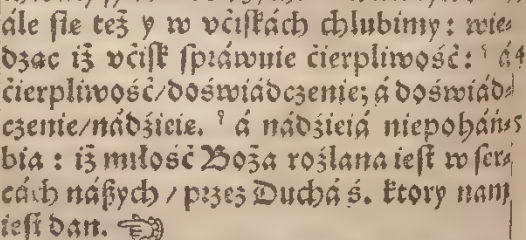 ále ſie też y w vćiſkách chlubimy: wie⸗
dząc iż vćiſk ſpráwuie ćierpliwość: á 4
ćierpliwość/doświádczenie; á doświád⸗
czenie/nádźieię. á nádźieiá niepoháń⸗ 5
bia: iż miłość Boża rozlana ieſt w ſer⸗
cách náßych / przez Duchá ś. ktory nam
ieſt dan. ☜